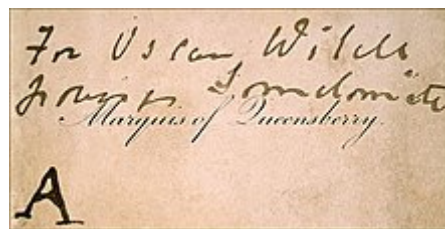 For Oscar Wilde
posing Somdomite
Marquis of Queensberry.
A